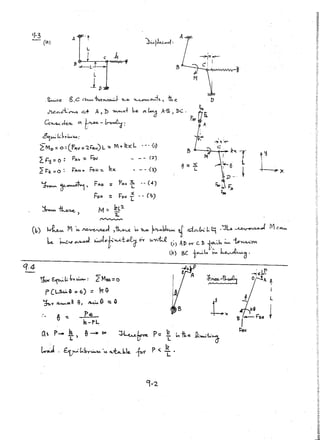 9.3
(a)
Displaced:
Since B,C can transmit no moments, the
reactions at A, D must be along AB, DC.
Consider a free-body:
Equilibrium:
ΣMD = 0 = (FAy + 2FAx) L = M + kxL --- (1)
ΣFy = 0 : FAy = FDy --- (2)
ΣFx = 0 : FAx + FDx = kx --- (3)
From geometry, FAx = FAy x/L -- (4)
FDx = FDy x/L -- (5)
From these, M =
(b) When M is reversed, there is no problem of stability. The reversed M can
be increased indefinitely or until (i) AB or CD fails in tension
(ii) BC fails in bending.
9.4
For Equilibrium: ΣM = 0
P (L sin θ + e) = kθ
For small θ, sin θ ≈ θ
∴ θ = Pe / k-PL
Free-body
As P → k/L, θ → ∞ Therefore P = k/L is the limiting
load. Equilibrium is stable for P < k/L.
9-2